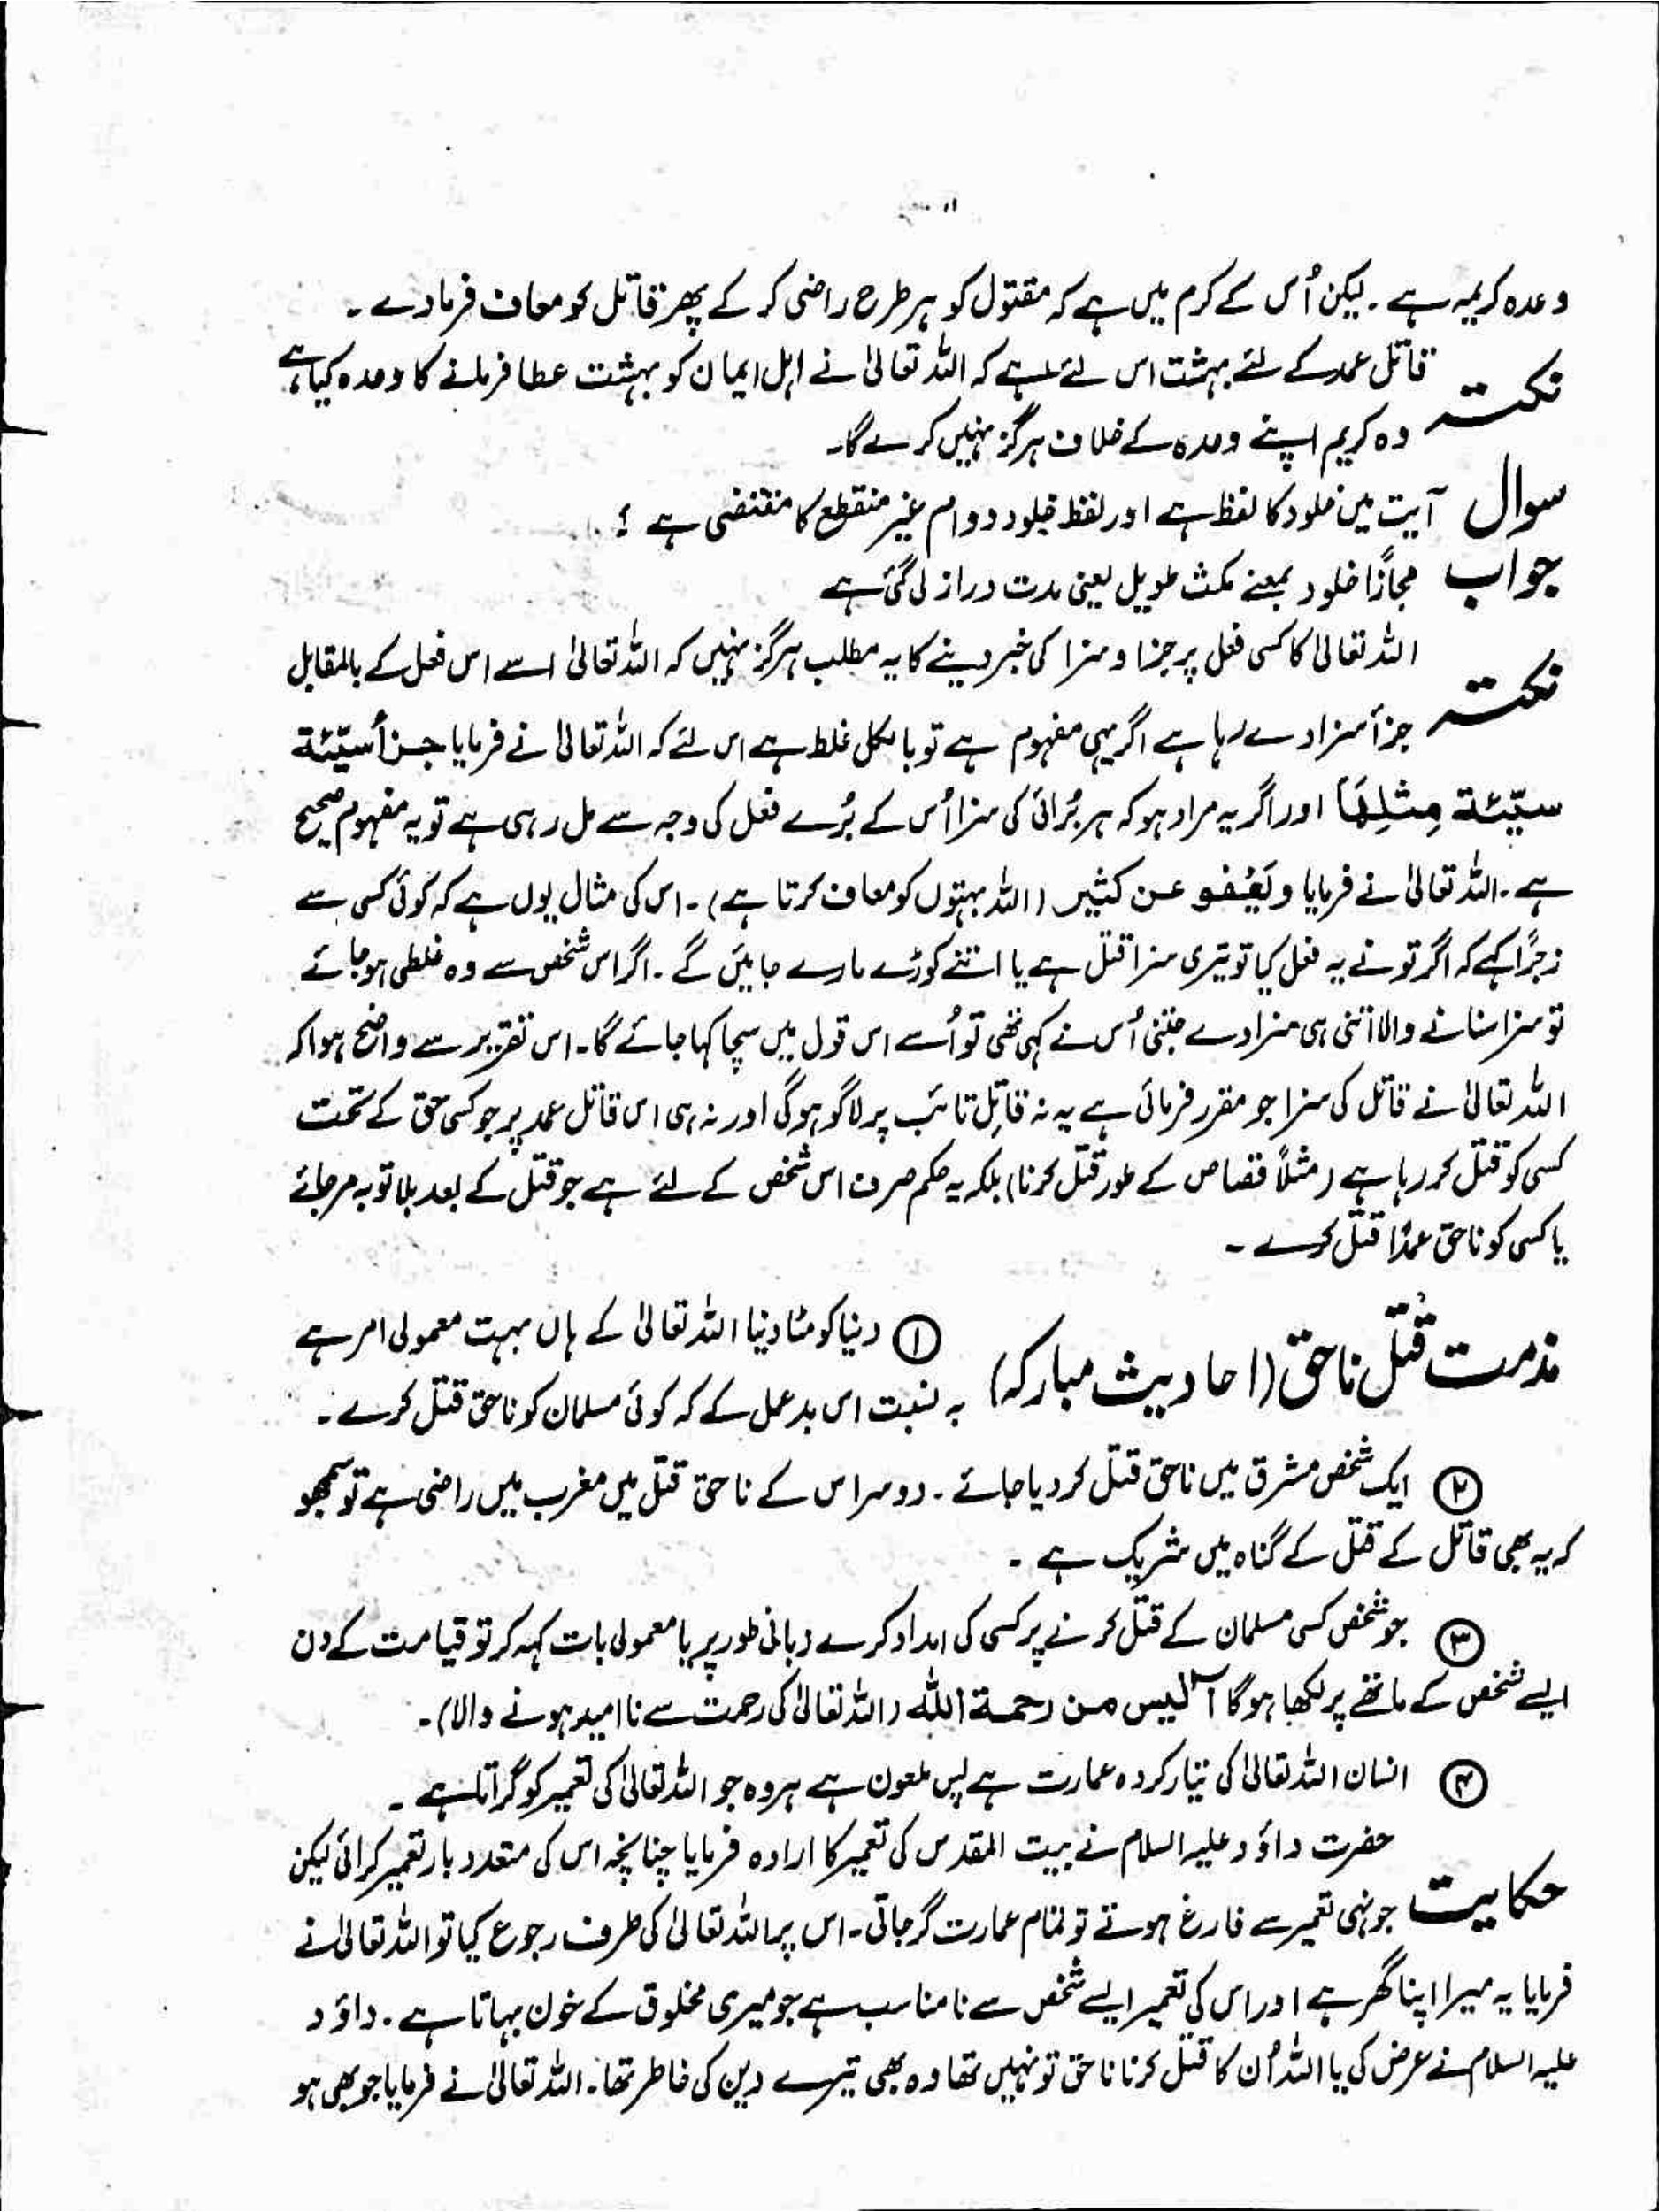 ۱۱
وعدہ کریمہ ہے ۔ لیکن اُس کے کرم میں ہے کہ مقتول کو ہر طرح راضی کر کے پھر قاتل کو معاف فرما دے ۔
نکتہ قاتل عمد کے لئے بہشت اس لئے ہے کہ اللہ تعالیٰ نے اہل ایمان کو بہشت عطا فرمانے کا وعدہ کیا ہے
وہ کریم اپنے وعدہ کے خلاف ہرگز نہیں کرے گا۔
سوال آیت میں خلود کا لفظ ہے اور لفظ خلود دوام غیر منقطع کا مقتضی ہے ؟
جواب مجازًا خلود بمعنے مکث طویل یعنی مدت دراز لی گئی ہے
نکتہ اللہ تعالیٰ کا کسی فعل پر جزا و سزا کی خبر دینے کا یہ مطلب ہرگز نہیں کہ اللہ تعالیٰ اسے اس فعل کے بالمقابل
جزأ سزا دے رہا ہے اگر یہی مفہوم ہے تو بالکل غلط ہے اس لئے کہ اللہ تعالیٰ نے فرمایا جزأ سیّئة
سیّئة مِثلِهَا اور اگر یہ مراد ہو کہ ہر بُرائی کی سزا اُس کے بُرے فعل کی وجہ سے مل رہی ہے تو یہ مفہوم صحیح
ہے ۔ اللہ تعالیٰ نے فرمایا ویَعْفو عن کثیر (اللہ بہتوں کو معاف کرتا ہے) ۔ اس کی مثال یوں ہے کہ کوئی کسی سے
زجرًا کہے کہ اگر تو نے یہ فعل کیا تو تیری سزا قتل ہے یا اتنے کوڑے مارے جائیں گے ۔ اگر اس شخص سے وہ غلطی ہو جائے
تو سزا سنانے والا اتنی ہی سزا دے جتنی اُس نے کہی تھی تو اُسے اس قول میں سچا کہا جائے گا۔ اس تقریر سے واضح ہوا کہ
اللہ تعالیٰ نے قاتل کی سزا جو مقرر فرمائی ہے یہ نہ قاتِل تائب پر لاگو ہوگی اور نہ ہی اس قاتل عمد پر جو کسی حق کے تحت
کسی کو قتل کر رہا ہے (مثلاً قصاص کے طور قتل کرنا) بلکہ یہ حکم صرف اس شخص کے لئے ہے جو قتل کے بعد بلا توبہ مر جائے
یا کسی کو ناحق عمدًا قتل کرے ۔
مذمت قتل ناحق (احادیث مبارکہ) ① دنیا کو مٹا دینا اللہ تعالیٰ کے ہاں بہت معمولی امر ہے
بہ نسبت اس بدعمل کے کہ کوئی مسلمان کو ناحق قتل کرے ۔
② ایک شخص مشرق میں ناحق قتل کر دیا جائے ۔ دوسرا اس کے ناحق قتل میں مغرب میں راضی ہے تو سمجھو
کہ یہ بھی قاتل کے قتل کے گناہ میں شریک ہے ۔
③ جو شخص کسی مسلمان کے قتل کرنے پر کسی کی امداد کرے زبانی طور پر یا معمولی بات کہہ کر تو قیامت کے دن
ایسے شخص کے ماتھے پر لکھا ہوگا آلیس من رحمة اللہ (اللہ تعالیٰ کی رحمت سے ناامید ہونے والا) ۔
④ انسان اللہ تعالیٰ کی تیار کردہ عمارت ہے پس ملعون ہے ہر وہ جو اللہ تعالیٰ کی تعمیر کو گراتا ہے ۔
حکایت حضرت داؤد علیہ السلام نے بیت المقدس کی تعمیر کا ارادہ فرمایا چنانچہ اس کی متعدد بار تعمیر کرائی لیکن
جونہی تعمیر سے فارغ ہوتے تو تمام عمارت گر جاتی ۔ اس پر اللہ تعالیٰ کی طرف رجوع کیا تو اللہ تعالیٰ نے
فرمایا یہ میرا اپنا گھر ہے اور اس کی تعمیر ایسے شخص سے نامناسب ہے جو میری مخلوق کے خون بہاتا ہے ۔ داؤد
علیہ السلام نے عرض کی یا اللہ اُن کا قتل کرنا ناحق تو نہیں تھا وہ بھی تیرے دین کی خاطر تھا ۔ اللہ تعالیٰ نے فرمایا جو بھی ہو